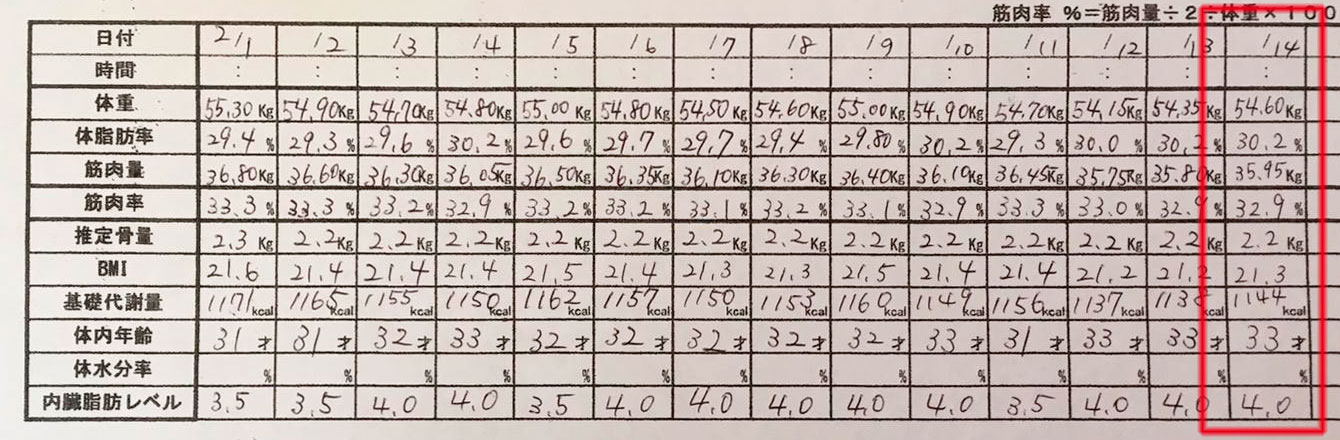 筋肉率 %=筋肉量÷2÷体重×100
日付 2/1 /2 /3 /4 /5 /6 /7 /8 /9 /10 /11 /12 /13 /14
時間 : : : : : : : : : : : : : :
体重 55.30Kg 54.90Kg 54.70Kg 54.80Kg 55.00Kg 54.80Kg 54.50Kg 54.60Kg 55.00Kg 54.90Kg 54.70Kg 54.15Kg 54.35Kg 54.60Kg
体脂肪率 29.4% 29.3% 29.6% 30.2% 29.6% 29.7% 29.7% 29.4% 29.80% 30.2% 29.3% 30.0% 30.2% 30.2%
筋肉量 36.80Kg 36.60Kg 36.30Kg 36.05Kg 36.50Kg 36.35Kg 36.10Kg 36.30Kg 36.40Kg 36.10Kg 36.45Kg 35.75Kg 35.80Kg 35.95Kg
筋肉率 33.3% 33.3% 33.2% 32.9% 33.2% 33.2% 33.1% 33.2% 33.1% 32.9% 33.3% 33.0% 32.9% 32.9%
推定骨量 2.3Kg 2.2Kg 2.2Kg 2.2Kg 2.2Kg 2.2Kg 2.2Kg 2.2Kg 2.2Kg 2.2Kg 2.2Kg 2.2Kg 2.2Kg 2.2Kg
BMI 21.6 21.4 21.4 21.4 21.5 21.4 21.3 21.3 21.5 21.4 21.4 21.2 21.2 21.3
基礎代謝量 1171kcal 1165kcal 1155kcal 1150kcal 1162kcal 1157kcal 1150kcal 1153kcal 1160kcal 1149kcal 1156kcal 1137kcal 1138kcal 1144kcal
体内年齢 31才 31才 32才 33才 32才 32才 32才 32才 32才 33才 31才 33才 33才 33才
体水分率 % % % % % % % % % % % % % %
内臓脂肪レベル 3.5 3.5 4.0 4.0 3.5 4.0 4.0 4.0 4.0 4.0 3.5 4.0 4.0 4.0